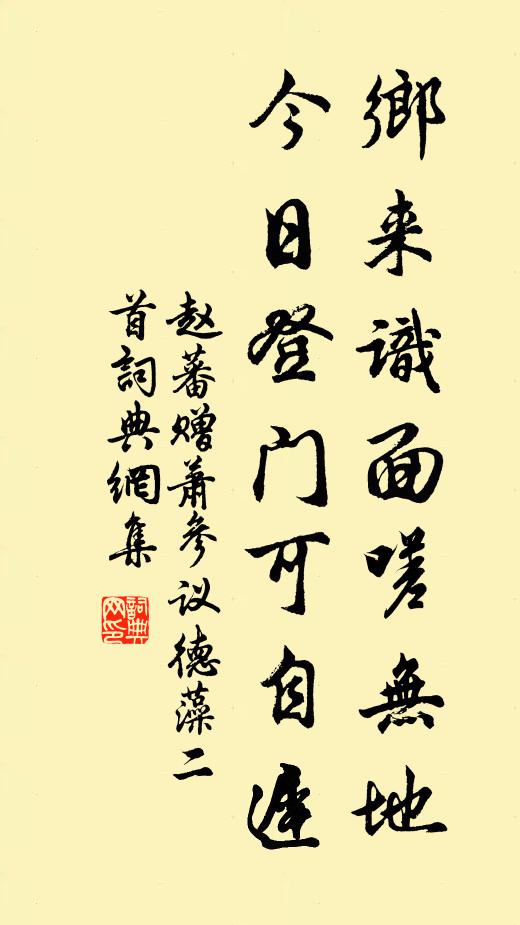 鄉来識面嗟無地
今日登门可自遲
赵蕃赠萧參议德藻二
首詞典網集
詞典网印